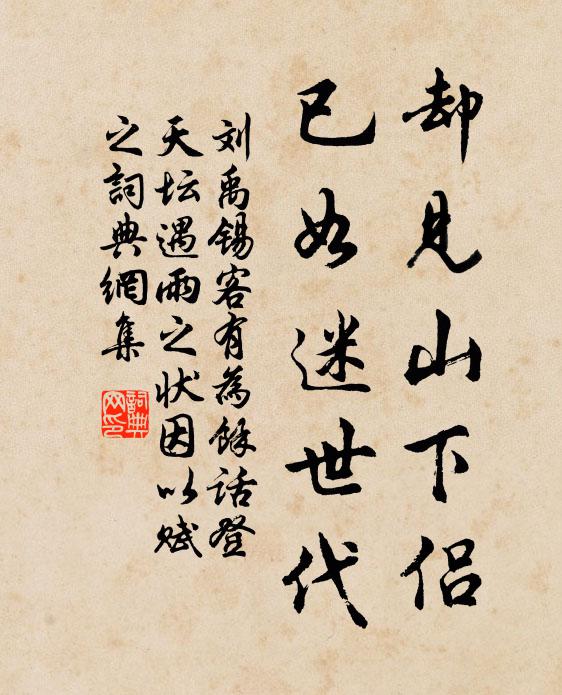 却见山下侣
已如迷世代
刘禹锡客有為餘话登
天坛遇雨之状因以赋
之詞典網集
詞典
网印